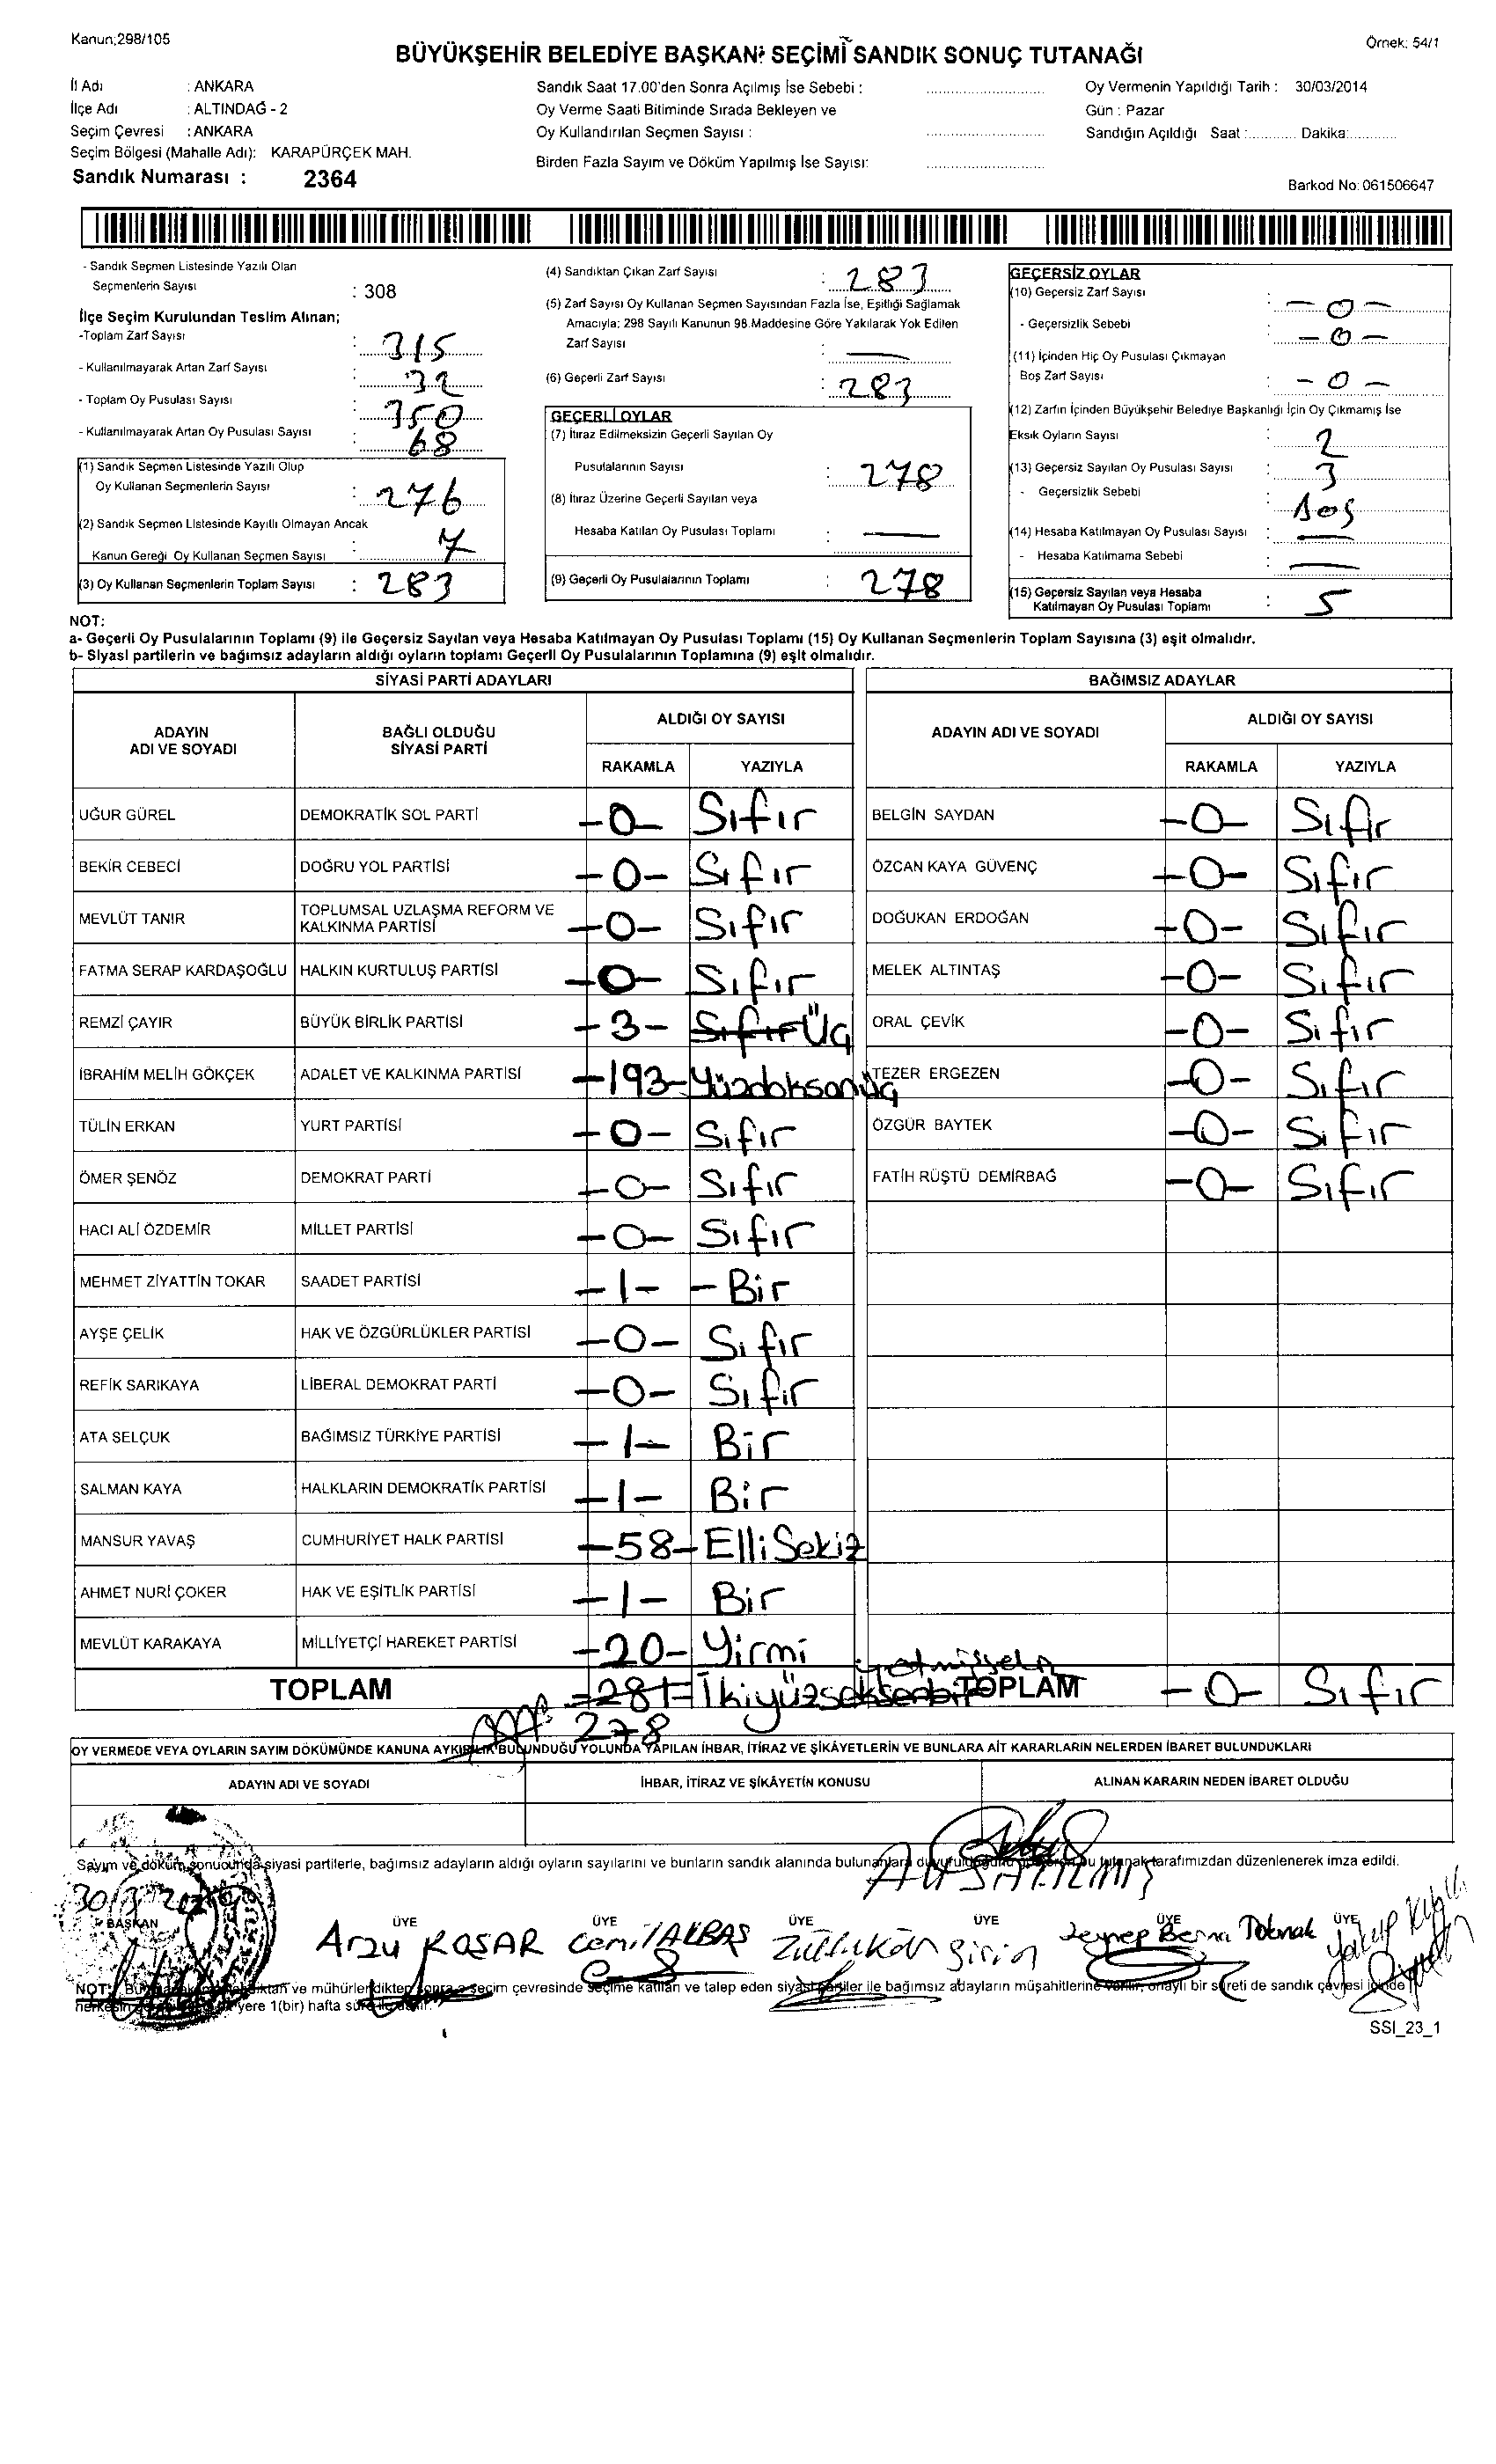 Kanun;298/105
Örnek: 54/1
BÜYÜKŞEHİR BELEDİYE BAŞKANI SEÇİMİ SANDIK SONUÇ TUTANAĞI
İl Adı : ANKARA
İlçe Adı : ALTINDAĞ - 2
Seçim Çevresi : ANKARA
Seçim Bölgesi (Mahalle Adı): KARAPÜRÇEK MAH.
Sandık Numarası : 2364
Sandık Saat 17.00'den Sonra Açılmış İse Sebebi :
Oy Verme Saati Bitiminde Sırada Bekleyen ve
Oy Kullandırılan Seçmen Sayısı :
Birden Fazla Sayım ve Döküm Yapılmış İse Sayısı:
Oy Vermenin Yapıldığı Tarih : 30/03/2014
Gün : Pazar
Sandığın Açıldığı Saat :............ Dakika:............
Barkod No: 061506647
- Sandık Seçmen Listesinde Yazılı Olan
Seçmenlerin Sayısı : 308
İlçe Seçim Kurulundan Teslim Alınan;
-Toplam Zarf Sayısı : 315
- Kullanılmayarak Artan Zarf Sayısı : 32
- Toplam Oy Pusulası Sayısı : 350
- Kullanılmayarak Artan Oy Pusulası Sayısı : 68
(1) Sandık Seçmen Listesinde Yazılı Olup
Oy Kullanan Seçmenlerin Sayısı : 276
(2) Sandık Seçmen Listesinde Kayıtlı Olmayan Ancak
Kanun Gereği Oy Kullanan Seçmen Sayısı : 7
(3) Oy Kullanan Seçmenlerin Toplam Sayısı : 283
(4) Sandıktan Çıkan Zarf Sayısı : 283
(5) Zarf Sayısı Oy Kullanan Seçmen Sayısından Fazla İse, Eşitliği Sağlamak
Amacıyla; 298 Sayılı Kanunun 98.Maddesine Göre Yakılarak Yok Edilen
Zarf Sayısı : —
(6) Geçerli Zarf Sayısı : 283
GEÇERLİ OYLAR
(7) İtiraz Edilmeksizin Geçerli Sayılan Oy
Pusulalarının Sayısı : 278
(8) İtiraz Üzerine Geçerli Sayılan veya
Hesaba Katılan Oy Pusulası Toplamı : —
(9) Geçerli Oy Pusulalarının Toplamı : 278
GEÇERSİZ OYLAR
(10) Geçersiz Zarf Sayısı : -0-
- Geçersizlik Sebebi : -0-
(11) İçinden Hiç Oy Pusulası Çıkmayan
Boş Zarf Sayısı : -0-
(12) Zarfın İçinden Büyükşehir Belediye Başkanlığı İçin Oy Çıkmamış İse
Eksik Oyların Sayısı : 2
(13) Geçersiz Sayılan Oy Pusulası Sayısı : 3
- Geçersizlik Sebebi : Boş
(14) Hesaba Katılmayan Oy Pusulası Sayısı : —
- Hesaba Katılmama Sebebi : —
(15) Geçersiz Sayılan veya Hesaba
Katılmayan Oy Pusulası Toplamı : 5
NOT:
a- Geçerli Oy Pusulalarının Toplamı (9) ile Geçersiz Sayılan veya Hesaba Katılmayan Oy Pusulası Toplamı (15) Oy Kullanan Seçmenlerin Toplam Sayısına (3) eşit olmalıdır.
b- Siyasi partilerin ve bağımsız adayların aldığı oyların toplamı Geçerli Oy Pusulalarının Toplamına (9) eşit olmalıdır.
SİYASİ PARTİ ADAYLARI
ADAYIN ADI VE SOYADI
BAĞLI OLDUĞU SİYASİ PARTİ
ALDIĞI OY SAYISI
RAKAMLA YAZIYLA
UĞUR GÜREL DEMOKRATİK SOL PARTİ -0- Sıfır
BEKİR CEBECİ DOĞRU YOL PARTİSİ -0- Sıfır
MEVLÜT TANIR TOPLUMSAL UZLAŞMA REFORM VE KALKINMA PARTİSİ -0- Sıfır
FATMA SERAP KARDAŞOĞLU HALKIN KURTULUŞ PARTİSİ -0- Sıfır
REMZİ ÇAYIR BÜYÜK BİRLİK PARTİSİ -3- Sıfır Üç
İBRAHİM MELİH GÖKÇEK ADALET VE KALKINMA PARTİSİ -193- Yüzdoksanüç
TÜLİN ERKAN YURT PARTİSİ -0- Sıfır
ÖMER ŞENÖZ DEMOKRAT PARTİ -0- Sıfır
HACI ALİ ÖZDEMİR MİLLET PARTİSİ -0- Sıfır
MEHMET ZİYATTİN TOKAR SAADET PARTİSİ -1- - Bir
AYŞE ÇELİK HAK VE ÖZGÜRLÜKLER PARTİSİ -0- Sıfır
REFİK SARIKAYA LİBERAL DEMOKRAT PARTİ -0- Sıfır
ATA SELÇUK BAĞIMSIZ TÜRKİYE PARTİSİ -1- Bir
SALMAN KAYA HALKLARIN DEMOKRATİK PARTİSİ -1- Bir
MANSUR YAVAŞ CUMHURİYET HALK PARTİSİ -58- Elli Sekiz
AHMET NURİ ÇOKER HAK VE EŞİTLİK PARTİSİ -1- Bir
MEVLÜT KARAKAYA MİLLİYETÇİ HAREKET PARTİSİ -20- Yirmi
TOPLAM -281- İkiyüzseksenbir
278
BAĞIMSIZ ADAYLAR
ADAYIN ADI VE SOYADI
ALDIĞI OY SAYISI
RAKAMLA YAZIYLA
BELGİN SAYDAN -0- Sıfır
ÖZCAN KAYA GÜVENÇ -0- Sıfır
DOĞUKAN ERDOĞAN -0- Sıfır
MELEK ALTINTAŞ -0- Sıfır
ORAL ÇEVİK -0- Sıfır
TEZER ERGEZEN -0- Sıfır
ÖZGÜR BAYTEK -0- Sıfır
FATİH RÜŞTÜ DEMİRBAĞ -0- Sıfır
TOPLAM -0- Sıfır
OY VERMEDE VEYA OYLARIN SAYIM DÖKÜMÜNDE KANUNA AYKIRILIK BULUNDUĞU YOLUNDA YAPILAN İHBAR, İTİRAZ VE ŞİKÂYETLERİN VE BUNLARA AİT KARARLARIN NELERDEN İBARET BULUNDUKLARI
ADAYIN ADI VE SOYADI
İHBAR, İTİRAZ VE ŞİKÂYETİN KONUSU
ALINAN KARARIN NEDEN İBARET OLDUĞU
Sayım ve döküm sonucunda siyasi partilerle, bağımsız adayların aldığı oyların sayılarını ve bunların sandık alanında bulunanlara bu tutanak tarafımızdan düzenlenerek imza edildi.
BAŞKAN ÜYE ÜYE ÜYE ÜYE ÜYE ÜYE
Arzu KOŞAR Cemil AKBAŞ Zülfükar Zeynep Yakup
NOT: ve mühürlendikten sonra o seçim çevresinde seçime katılan ve talep eden siyasi partiler ile bağımsız adayların müşahitlerine verilir, onaylı bir sureti de sandık çevresi içinde
yere 1(bir) hafta
SSI_23_1